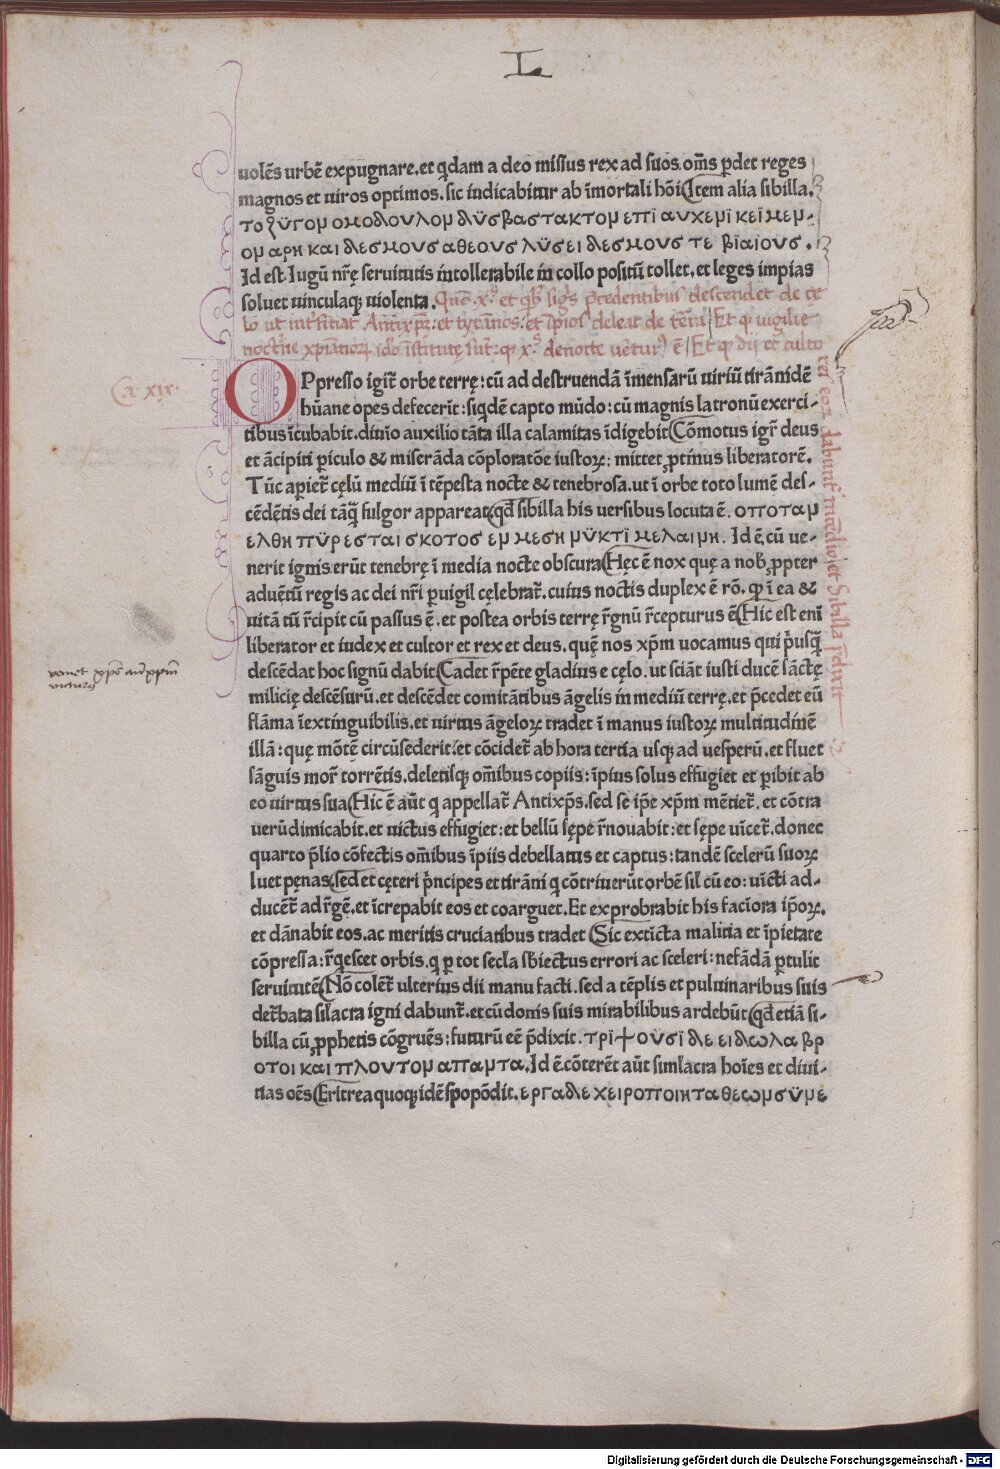 L
uolēs urbē expugnare.et q̄dam a deo missus rex ad suos.om̄s p̄det reges
magnos et uiros optimos.sic iudicabitur ab īmortali hōi(Item alia sibilla.
το ζϋγομ ομοδουλομ δϋσβαστακτομ επϊ αυχεμϊ κεϊμεμ-
ομ αρη και δεσμουσ αθεουσ λϋσει δεσμουσ τε βϊαιουσ.
Id est Iugū nr̄ę seruitutis intollerabile in collo positū tollet.et leges impias
soluet uinculaq; uiolenta. Quō xp̄s et qb; sig̃s p̄cedentibus descendet de cę
lo ut int̄ficiat Antixp̄m: et tyrānos: et īpios deleat de terra/ Et qr uigilie
nocturne xpianoru idō īstitutę sūt: qr xp̄s de nocte uēturus ē/ Et qr dii et culto
res eorum dabuntur incēdio/et Sibilla p̄dixit
Ca. xix.
OPpresso igit̄ orbe terrę:cū ad destruendā īmensarū uiriū tirānidē
hūane opes defecerīt:siqdē capto mūdo:cū magnis latronū exerci-
tibus īcubabit.diuīo auxilio tāta illa calamitas īdigebit(Cōmotus igr̄ deus
et ācipiti piculo & miserāda cōploratōe iustoꝝ: mittet ꝓtinus liberatorē.
Tūc apiet̄ cęlū mediū ī tēpesta nocte & tenebrosa.ut ī orbe toto lumē des-
cēdētis dei tāq̄ fulgor appareat(qd̄ sibilla his uersibus locuta ē. οποταμ
ελθη πϋρ εσται σκοτοσ εμ μεση μϋκτϊ μελαιμη. Id ē cū ue-
nerit ignis.erūt tenebrę ī media nocte obscura(Hęc ē nox quę a nob ꝓpter
aduētū regis ac dei nr̄i puigil cęlebrat̄.cuius noctis duplex ē rō. qr ī ea &
uitā tū r̄cipit cū passus ē.et postea orbis terrę r̄gnū r̄cepturus ē(Hic est eni
liberator et iudex et cultor et rex et deus.quę nos xp̄m uocamus qui p̄usq̄
descēdat hoc signū dabit(Cadet r̄pēte gladius e cęlo.ut sciāt iusti ducē sāctę
milicię descēsurū.et descēdet comitātibus āgelis in mediū terrę.et p̄cedet eū
flāma īextinguibilis.et uirtus āgeloꝝ tradet ī manus iustoꝝ multitudinē
illā:quę mōtē circūsederit:et cōcidet̄ ab hora tertia usq; ad uesperū.et fluet
sāguis mor̄ torrētis.deletisq; om̄ibus copiis:īpius solus effugiet et pibit ab
eo uirtus sua(Hic ē aūt q appellat̄ Antixp̄s.sed se ip̄e xp̄m mētiet̄.et cōtra
uerū dimicabit.et uictus effugiet:et bellū sępe r̄nouabit:et sępe uīcet̄.donec
quarto p̄lio cōfectis om̄ibus īpiis debellatus et captus:tandē scelerū suoꝝ
luet pęnas(sed et cęteri p̄ncipes et tirāni q cōtriuerūt orbē sil cū eo:uīcti ad-
ducēt̄ ad r̄gē.et īcrepabit eos et coarguet.Et exprobrabit his facīora ip̄oꝝ.
et dānabit eos.ac meritis cruciatibus tradet (Sic extīcta malitia et īpietate
cōpressa:r̄qescet orbis.q p tot secla sb̄iectus errori ac sceleri:nefādā ptulit
seruitutē(Nō colēt̄ ulterius dii manu facti.sed a tēplis et puluinaribus suis
det̄bata silacra igni dabunt̄.et cū donis suis mirabilibus ardebūt(qd̄ etiā si-
billa cū ꝓphetis cōgruēs:futurū eē p̄dixit.τρϊψουσϊ δε ειδωλα βρ
οτοι και πλουτομ απαμτα.Id ē cōterēt aūt simlacra hoīes et diui-
tias oēs(Eritrea quoq; idē spopōdit.εργα δε χειροποιητα θεωμ σϋμε